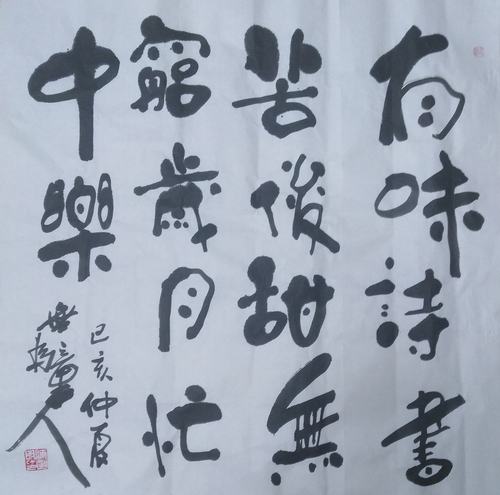 有味詩書
苦後甜無
窮歲月忙
中樂
己亥仲夏
人